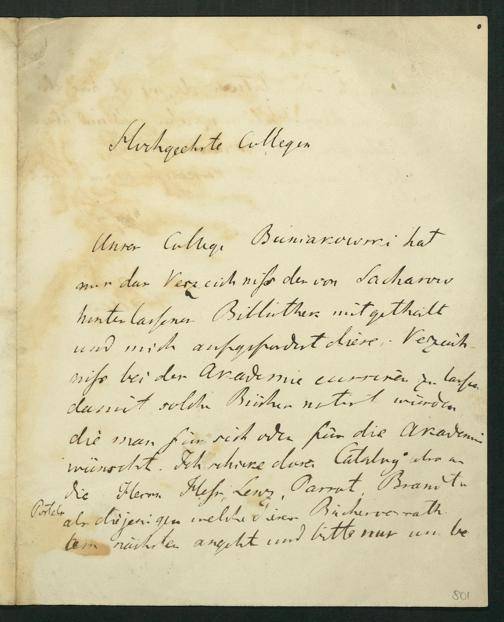 Hochgeehrte Collegen
Unser College Buniakowski hat
mir das Verzeichniß der von Sacharow
hinterlassenen Bibliothek mitgetheilt
und mich aufgefordert dieses Verzeich-
niß bei der Akademie cursiren zu lassen
damit solche Bücher notirt würden
die man für sich oder für die Akademie
wünscht. Ich schicke diesen Catalog also an
die Herrn Heß, Lenz, Parrot, Brandt
als diejenigen welche dieser Büchervorrath
am nächsten angeht und bitte nur um be
801